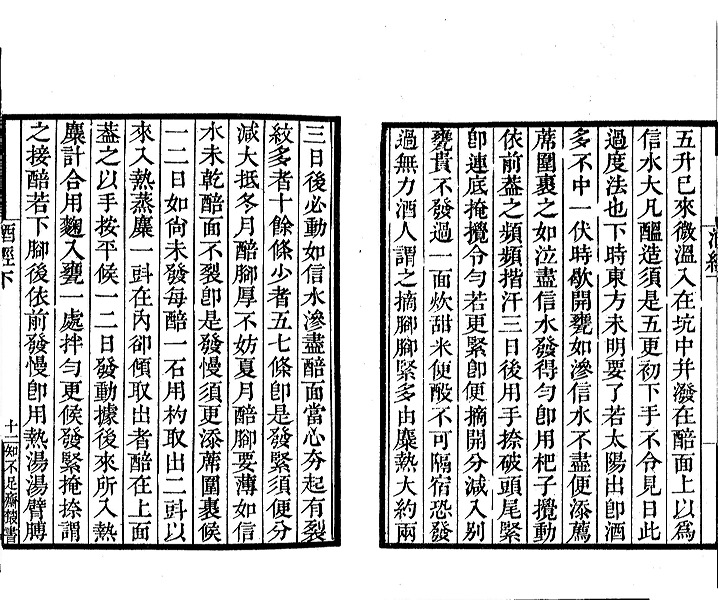 五升已來微溫入在坑中并潑在醅面上以為
信水大凡醞造須是五更初下手不令見日此
過度法也下時東方未明要了若太陽出卽酒
多不中一伏時歇開甕如滲信水不盡便添薦
蓆圍裹之如泣盡信水發得勻卽用杷子攪動
依前蓋之頻頻揩汗三日後用手捺破頭尾緊
卽連底掩攪令勻若更緊卽便摘開分減入別
甕貴不發過一面炊甜米便酘不可隔宿恐發
過無力酒人謂之摘腳腳緊多由糜熱大約兩
三日後必動如信水滲盡醅面當心夯起有裂
紋多者十餘條少者五七條卽是發緊須便分
減大抵冬月醅腳厚不妨夏月醅腳要薄如信
水未乾醅面不裂卽是發慢須更添蓆圍裹候
一二日如尙未發每醅一石用杓取出二㪷以
來入熱蒸糜一㪷在內卻傾取出者醅在上面
蓋之以手按平候一二日發動據後來所入熱
糜計合用麴入甕一處拌勻更候發緊掩捺謂
之接醅若下腳後依前發慢卽用熱湯湯臂膊
酒經下
十二
知不足齋叢書